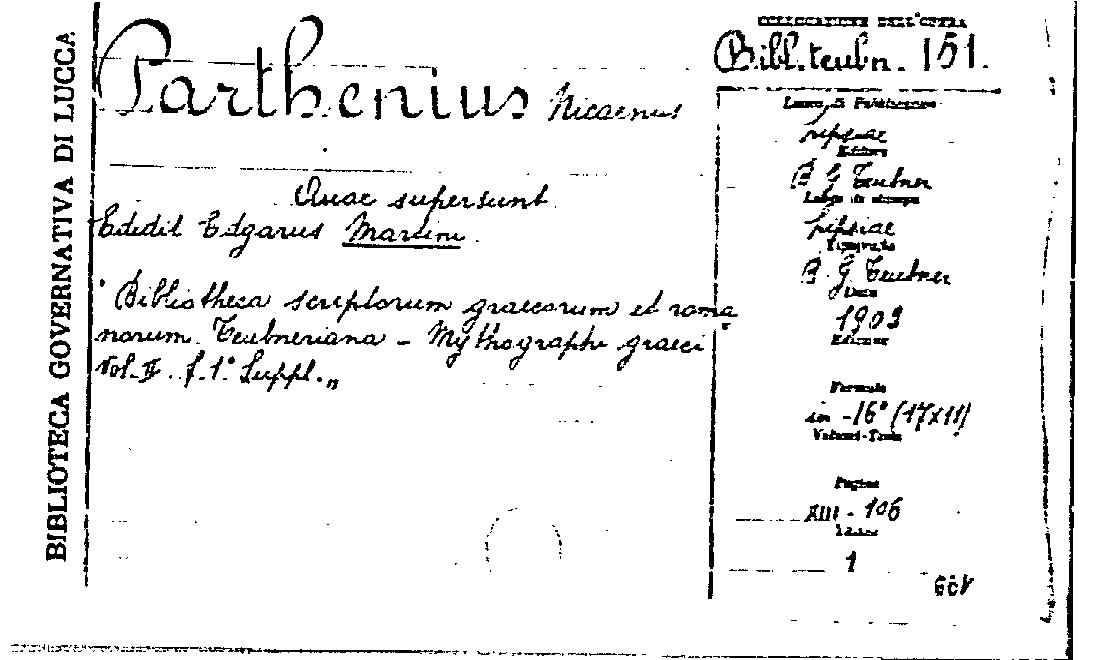 BIBLIOTECA GOVERNATIVA DI LUCCA
Parthenius Nicaenus
Quae supersunt
Edidit Edgarus Martini.
"Bibliotheca scriptorum graecorum et roma
norum Teubneriana - Mythographi graeci
Vol. II. f. 1° Suppl.„
COLLOCAZIONE DELL'OPERA
Bibl. teubn. 151.
Luogo di Pubblicazione
Lipsiae
Editore
B G Teubner
Luogo di stampa
Lipsiae
Tipografia
B. G Teubner
Data
1902
Edizione
Formato
in-16° (17x11)
Volumi-Tomi
Pagine
XIII - 106
1